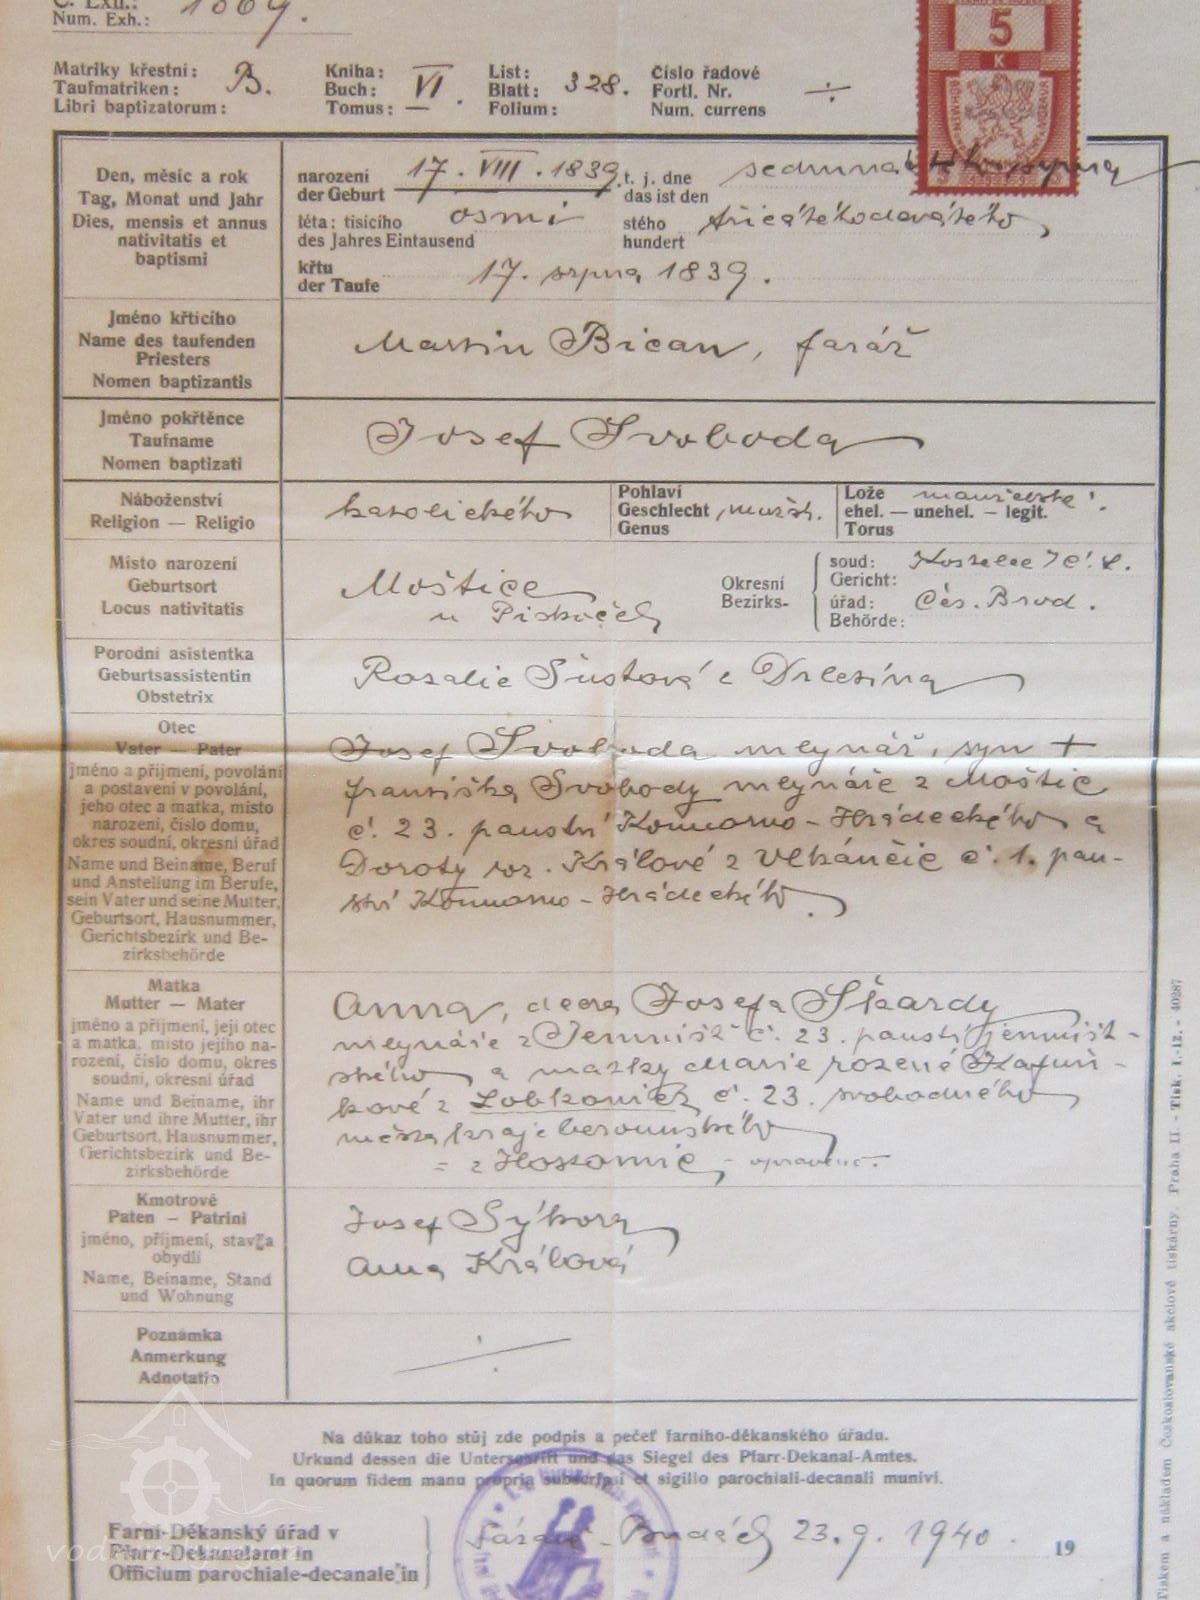 Č. Exh.: 1669.
Num. Exh.:
5
K
Matriky křestní: B. Kniha: VI List: 328. Číslo řadové
Taufmatriken: Buch: Blatt: Fortl. Nr. ÷
Libri baptizatorum: Tomus: — . Folium: Num. currens
Den, měsíc a rok
Tag, Monat und Jahr
Dies, mensis et annus
nativitatis et
baptismi
narození 17. VIII. 1839. t. j. dne
der Geburt das ist den
léta: tisícího osmi stého třicátéhodevátého
des Jahres Eintausend hundert
křtu 17. srpna 1839.
der Taufe
Jméno křticího
Name des taufenden
Priesters
Nomen baptizantis
Martin Bican, farář
Jméno pokřtěnce
Taufname
Nomen baptizati
Josef Svoboda
Náboženství
Religion — Religio
katolického
Pohlaví
Geschlecht mužsk.
Genus
Lože manželské
ehel. — unehel. — legit.
Torus
Místo narození
Geburtsort
Locus nativitatis
Moštice
u Piskoček
Okresní
Bezirks-
soud: Kostelec n/Č. L.
Gericht:
úřad: Čes. Brod.
Behörde:
Porodní asistentka
Geburtsassistentin
Obstetrix
Rosalie Šustová z
Otec
Vater — Pater
jméno a příjmení, povolání
a postavení v povolání,
jeho otec a matka, místo
narození, číslo domu,
okres soudní, okresní úřad
Name und Beiname, Beruf
und Anstellung im Berufe,
sein Vater und seine Mutter,
Geburtsort, Hausnummer,
Gerichtsbezirk und Be-
zirksbehörde
Josef Svoboda mlynář, syn +
Františka Svobody mlynáře z Moštic
č. 23. panství Komorno-Hrádeckého a
Doroty roz. Králové z Vlkančic č. 1. pan-
ství Komorno-Hrádeckého.
Matka
Mutter — Mater
jméno a příjmení, její otec
a matka, místo jejího na-
rození, číslo domu, okres
soudní, okresní úřad
Name und Beiname, ihr
Vater und ihre Mutter, ihr
Geburtsort, Hausnummer,
Gerichtsbezirk und Be-
zirksbehörde
Anna, dcera Josefa Škardy
mlynáře z Jemnišť č. 23. panství jemništ-
ského a matky Marie rozené
z Lobkovicz č. 23. svobodného
města kraje berounského
= z Hostomic - opraveno.
Kmotrové
Paten — Patrini
jméno, příjmení, stav a
obydlí
Name, Beiname, Stand
und Wohnung
Josef Sýkora
Anna Králová
Poznámka
Anmerkung
Adnotatio
Na důkaz toho stůj zde podpis a pečeť farního-děkanského úřadu.
Urkund dessen die Unterschrift und das Siegel des Pfarr-Dekanal-Amtes.
In quorum fidem manu propria subscripsi et sigillo parochiali-decanali munivi.
Farní-Děkanský úřad v
Pfarr-Dekanalamt in
Officium parochiale-decanale in
23. 9. 1940. 19
Tiskem a nákladem Českoslovanské akciové tiskárny, Praha II. - Tisk. 1.-12. - 40287